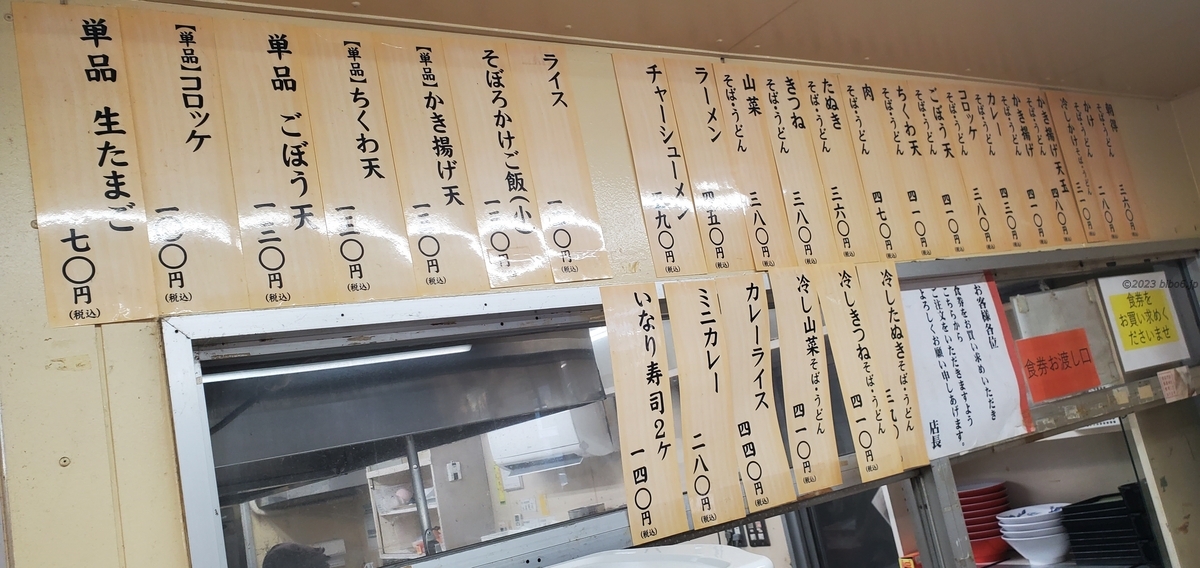 朝得
そば・うどん
かけ
そば・うどん
二八〇円
(税込)
冷しかけ
そば・うどん
三一〇円
(税込)
かき揚げ天玉
そば・うどん
四八〇円
(税込)
かき揚げ
そば・うどん
四一〇円
(税込)
カレー
そば・うどん
四三〇円
(税込)
コロッケ
そば・うどん
三八〇円
(税込)
ごぼう天
そば・うどん
四一〇円
(税込)
ちくわ天
そば・うどん
四一〇円
(税込)
肉
そば・うどん
四七〇円
(税込)
たぬき
そば・うどん
三六〇円
(税込)
きつね
そば・うどん
三八〇円
(税込)
山菜
そば・うどん
三八〇円
(税込)
ラーメン
四五〇円
(税込)
チャーシューメン
九〇円
(税込)
ライス
〇円
(税込)
そぼろかけご飯(小)
〇円
(税込)
【単品】かき揚げ天
〇円
(税込)
【単品】ちくわ天
一三〇円
(税込)
単品 ごぼう天
一三〇円
(税込)
【単品】コロッケ
〇円
(税込)
単品 生たまご
七〇円
(税込)
冷したぬきそば・うどん
冷しきつねそば・うどん
四一〇円
(税込)
冷し山菜そば・うどん
四一〇円
(税込)
カレーライス
四四〇円
(税込)
ミニカレー
二八〇円
(税込)
いなり寿司2ケ
一四〇円
(税込)
お客様各位
食券をお買い求めいただき
こちらから
ご注文をいただきますよう
よろしくお願い申しあげます。
店長
食券お渡し口
食券を
お買い求めく
ださいませ
©2023 blbos.jp